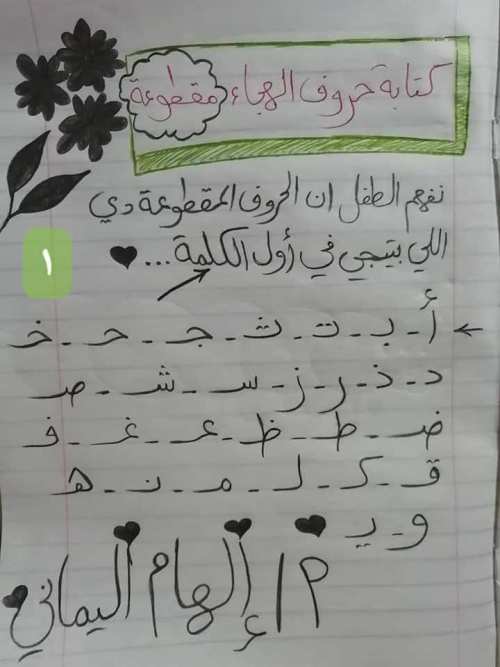 كتابة حروف الهجاء مقطوعة
نفهم الطفل ان الحروف المقطوعة دي
اللي بتيجي في أول الكلمة...
١
أ - بـ - تـ - ثـ - جـ - حـ - خـ
د - ذ - ر - ز - سـ - شـ - صـ
ضـ - طـ - ظـ - عـ - غـ - فـ
قـ - كـ - لـ - مـ - نـ - هـ
و - يـ
م / إلهام اليماني